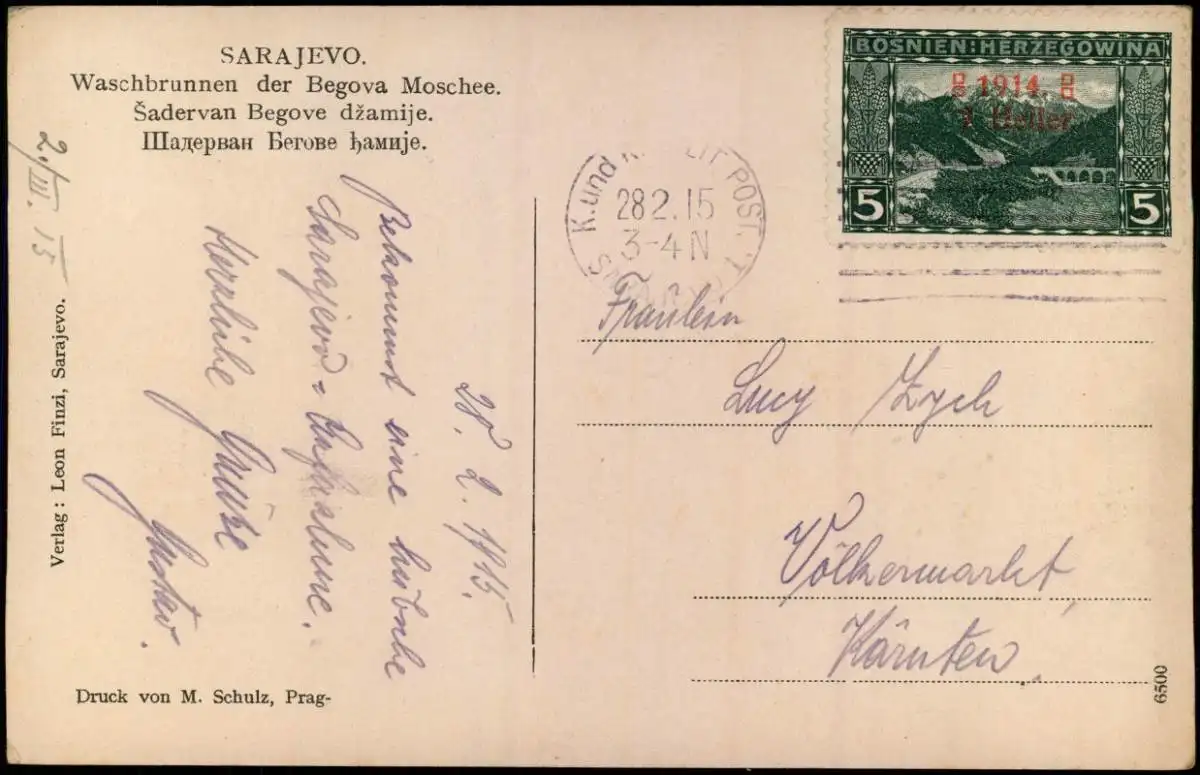 SARAJEVO.
Waschbrunnen der Begova Moschee.
Šadervan Begove džamije.
Шадерван Бегове ђамије.
2./III. 15
Verlag : Leon Finzi, Sarajevo.
28. 2. 1915.
Bekommst eine hübsche
Sarajevo =
Herzliche Grüße
Gustav.
Druck von M. Schulz, Prag-
BOSNIEN:HERZEGOWINA
1914.
7 Heller
5 5
K. und K. MILIT. POST.
28 2. 15
3-4 N
Fräulein
Lucy Zych
Völkermarkt,
Kärnten.
6500